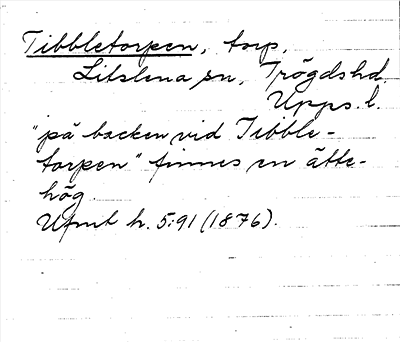 Tibbletorpen, torp,
Litslena sn, Trögdshd
Upps. l.
"på backen vid Tibble-
torpen" finnes en ätte-
hög.
Ufmt h. 5:91 (1876).